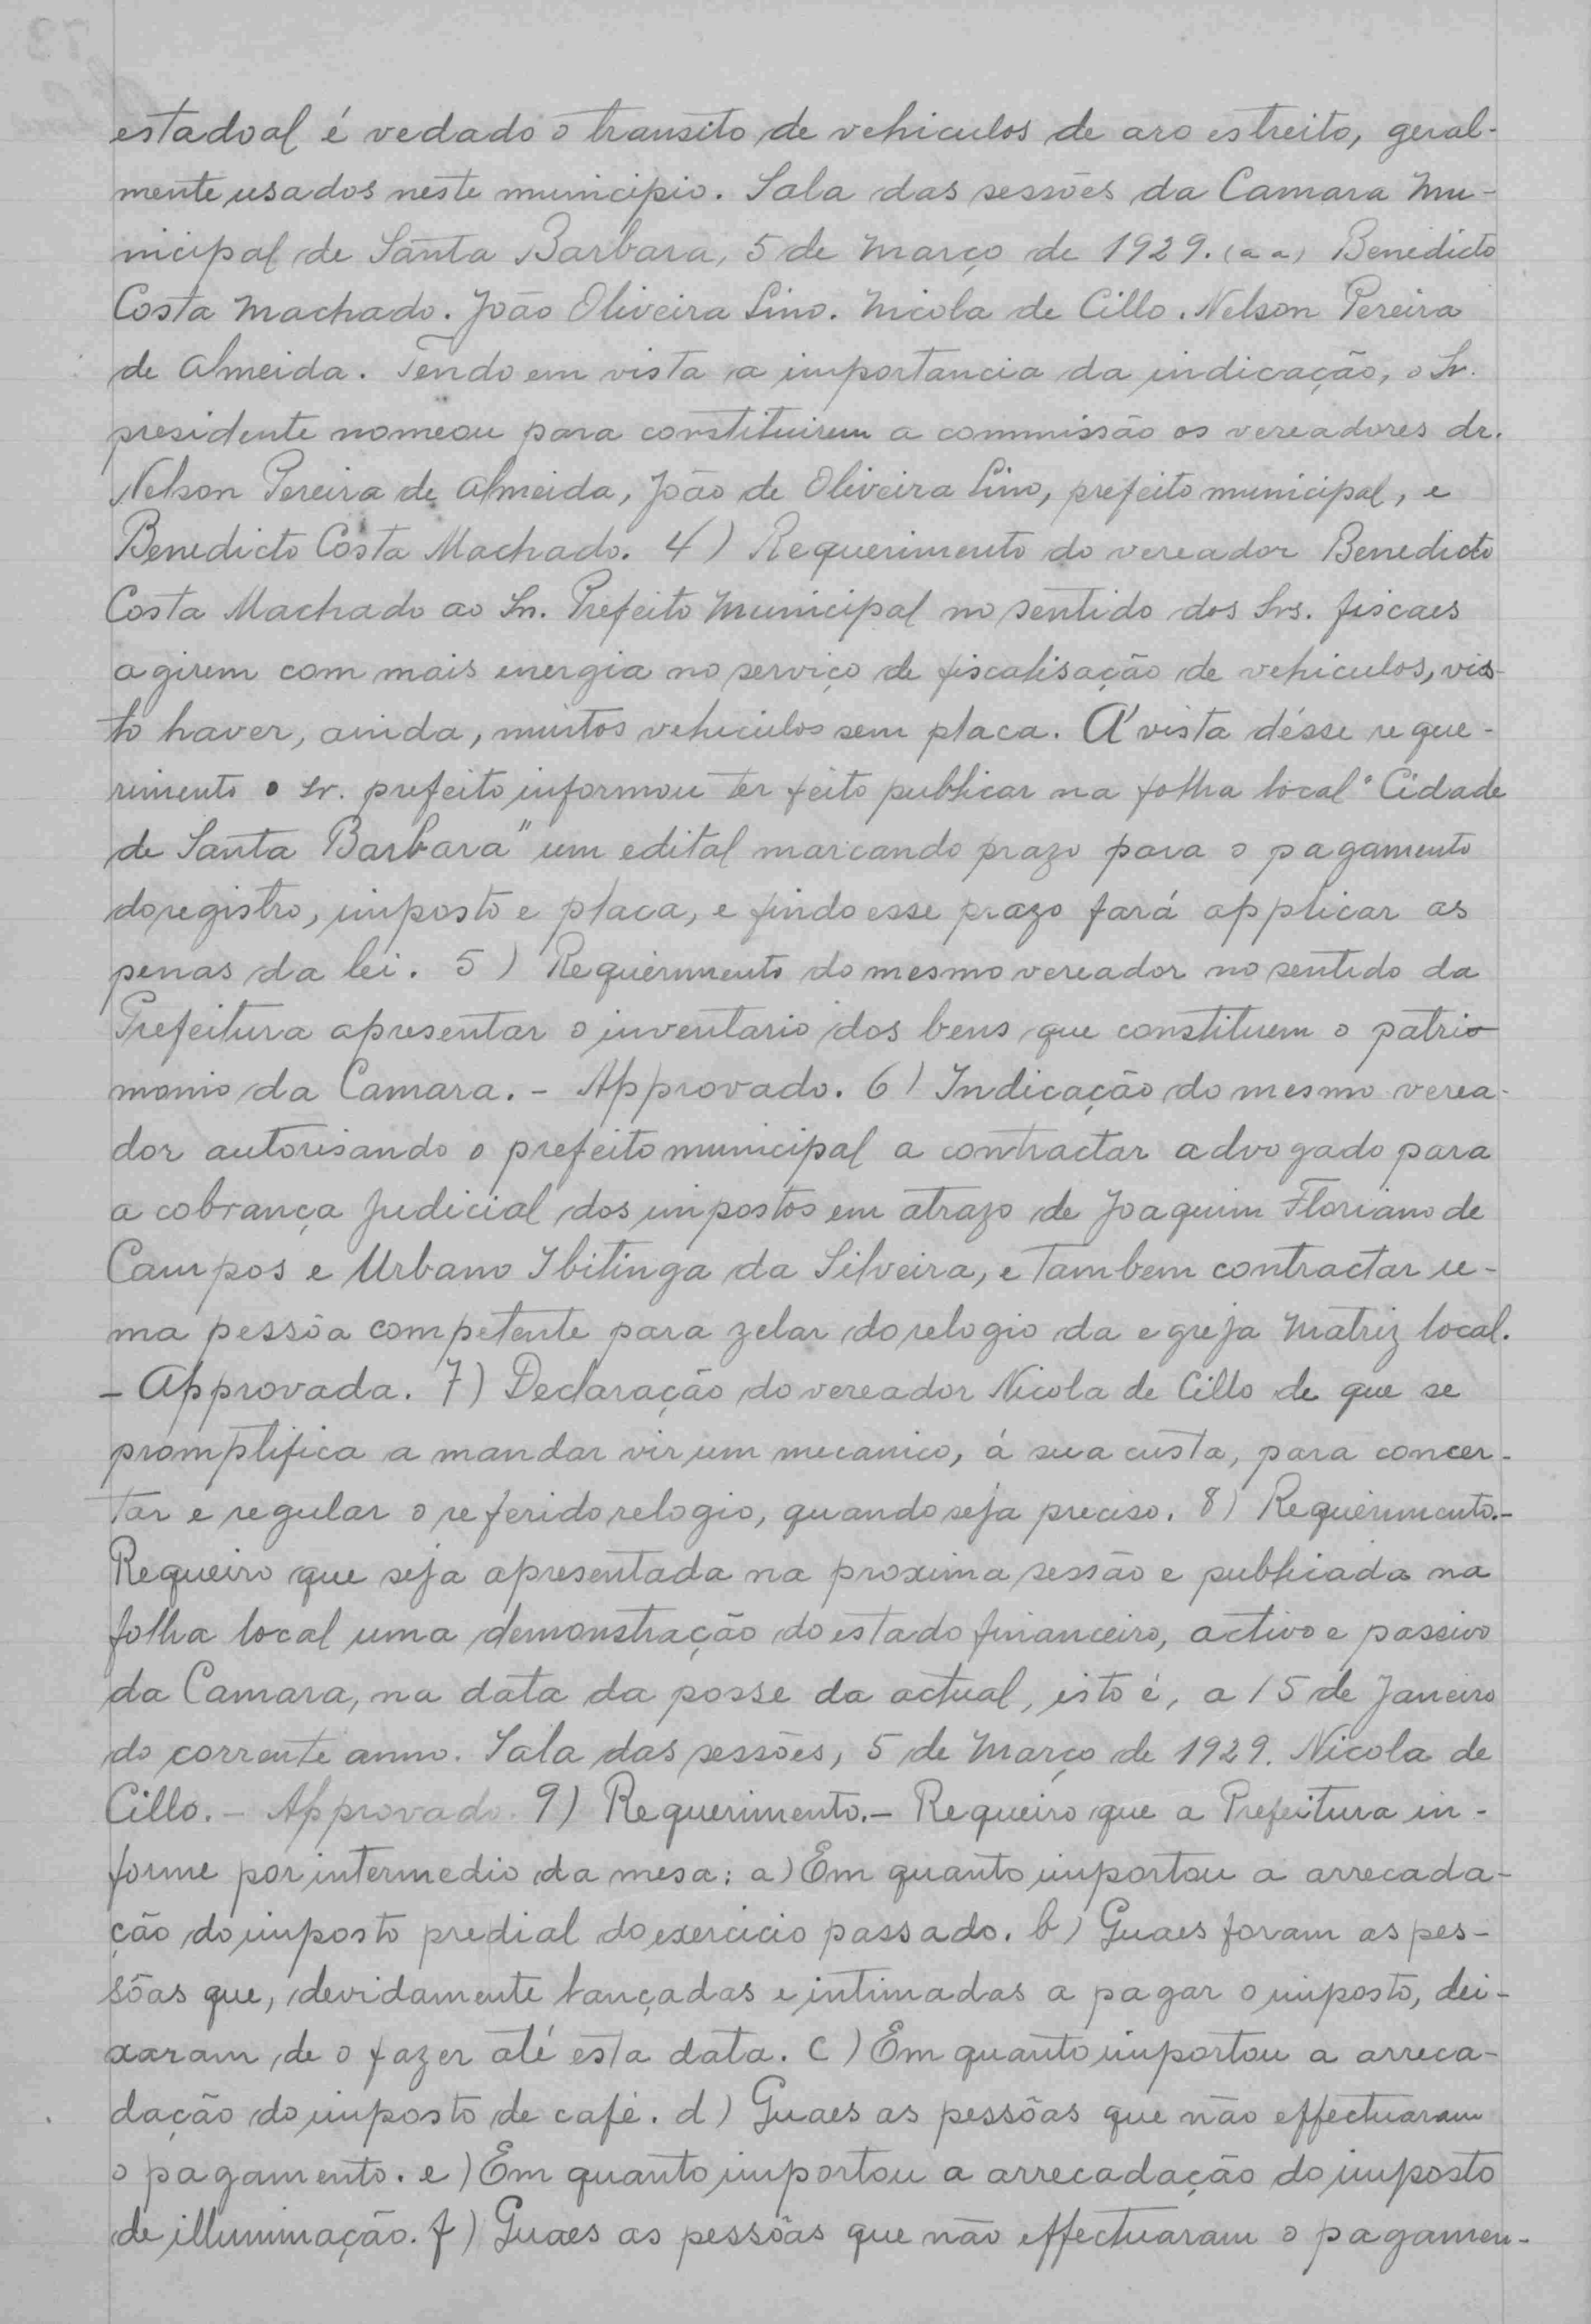 estadoal é vedado o transito de vehiculos de aro estreito, geral-
mente usados neste municipio. Sala das sessões da Camara Mu-
nicipal de Santa Barbara, 5 de Março de 1929. (a a) Benedicto
Costa Machado. João Oliveira Lino. Nicola de Cillo. Nelson Pereira
de Almeida. Tendo em vista a importancia da indicação, o Sr.
presidente nomeou para constituirem a commissão os vereadores dr.
Nelson Pereira de Almeida, João de Oliveira Lino, prefeito municipal, e
Benedicto Costa Machado. 4) Requerimento do vereador Benedicto
Costa Machado ao Sn. Prefeito Municipal no sentido dos Srs. fiscaes
agirem com mais energia no serviço de fiscalisação de vehiculos, vis-
to haver, ainda, muitos vehiculos sem placa. A' vista désse reque-
rimento o sr. prefeito informou ter feito publicar na folha local "Cidade
de Santa Barbara" um edital marcando prazo para o pagamento
do registro, imposto e placa, e findo esse prazo fará applicar as
penas da lei. 5) Requerimento do mesmo vereador no sentido da
Prefeitura apresentar o inventario dos bens que constituem o patrio
monio da Camara. - Approvado. 6) Indicação do mesmo verea-
dor autorisando o prefeito municipal a contractar advogado para
a cobrança Judicial dos impostos em atrazo de Joaquim Floriano de
Campos e Urbano Ibitinga da Silveira, e tambem contractar u-
ma pessôa competente para zelar do relogio da egreja Matriz local.
- Approvada. 7) Declaração do vereador Nicola de Cillo de que se
promptifica a mandar vir um mecanico, á sua custa, para concer-
tar e regular o referido relogio, quando seja preciso. 8) Requerimento.-
Requeiro que seja apresentada na proxima sessão e publicada na
folha local uma demonstração do estado financeiro, activo e passivo
da Camara, na data da posse da actual, isto é, a 15 de Janeiro
do corrente anno. Sala das sessões, 5 de Março de 1929. Nicola de
Cillo. - Approvado. 9) Requerimento.- Requeiro que a Prefeitura in-
forme por intermedio da mesa: a) Em quanto importou a arrecada-
ção do imposto predial do exercicio passado. b) Quaes foram as pes-
sôas que, devidamente lançadas e intimadas a pagar o imposto, dei-
xaram de o fazer até esta data. c) Em quanto importou a arreca-
dação do imposto de café. d) Quaes as pessôas que não effectuaram
o pagamento. e) Em quanto importou a arrecadação do imposto
de illuminação. f) Quaes as pessôas que não effectuaram o pagamen-